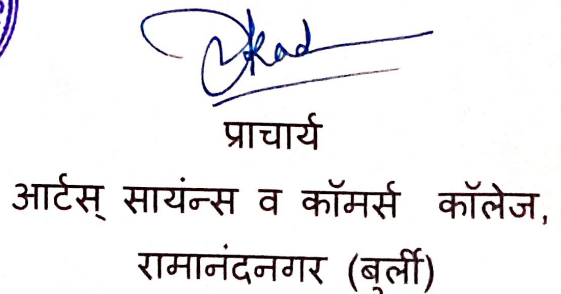 प्राचार्य
आर्टस् सायंन्स व कॉमर्स कॉलेज,
रामानंदनगर (बुर्ली)